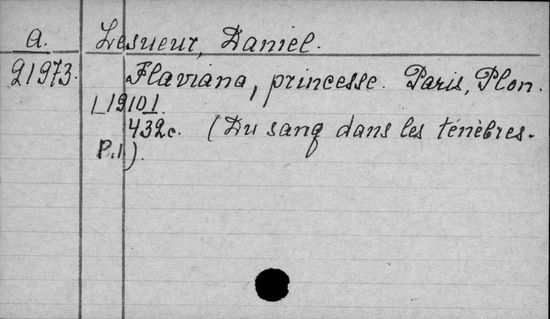 a. Lesueur, Daniel.
21973. Flaviana, princesse. Paris, Plon.
[1910].
432c. (Du sang dans les ténèbres.
P.1).